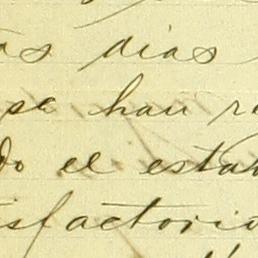 as dias
se han re
do el estad
isfactorio